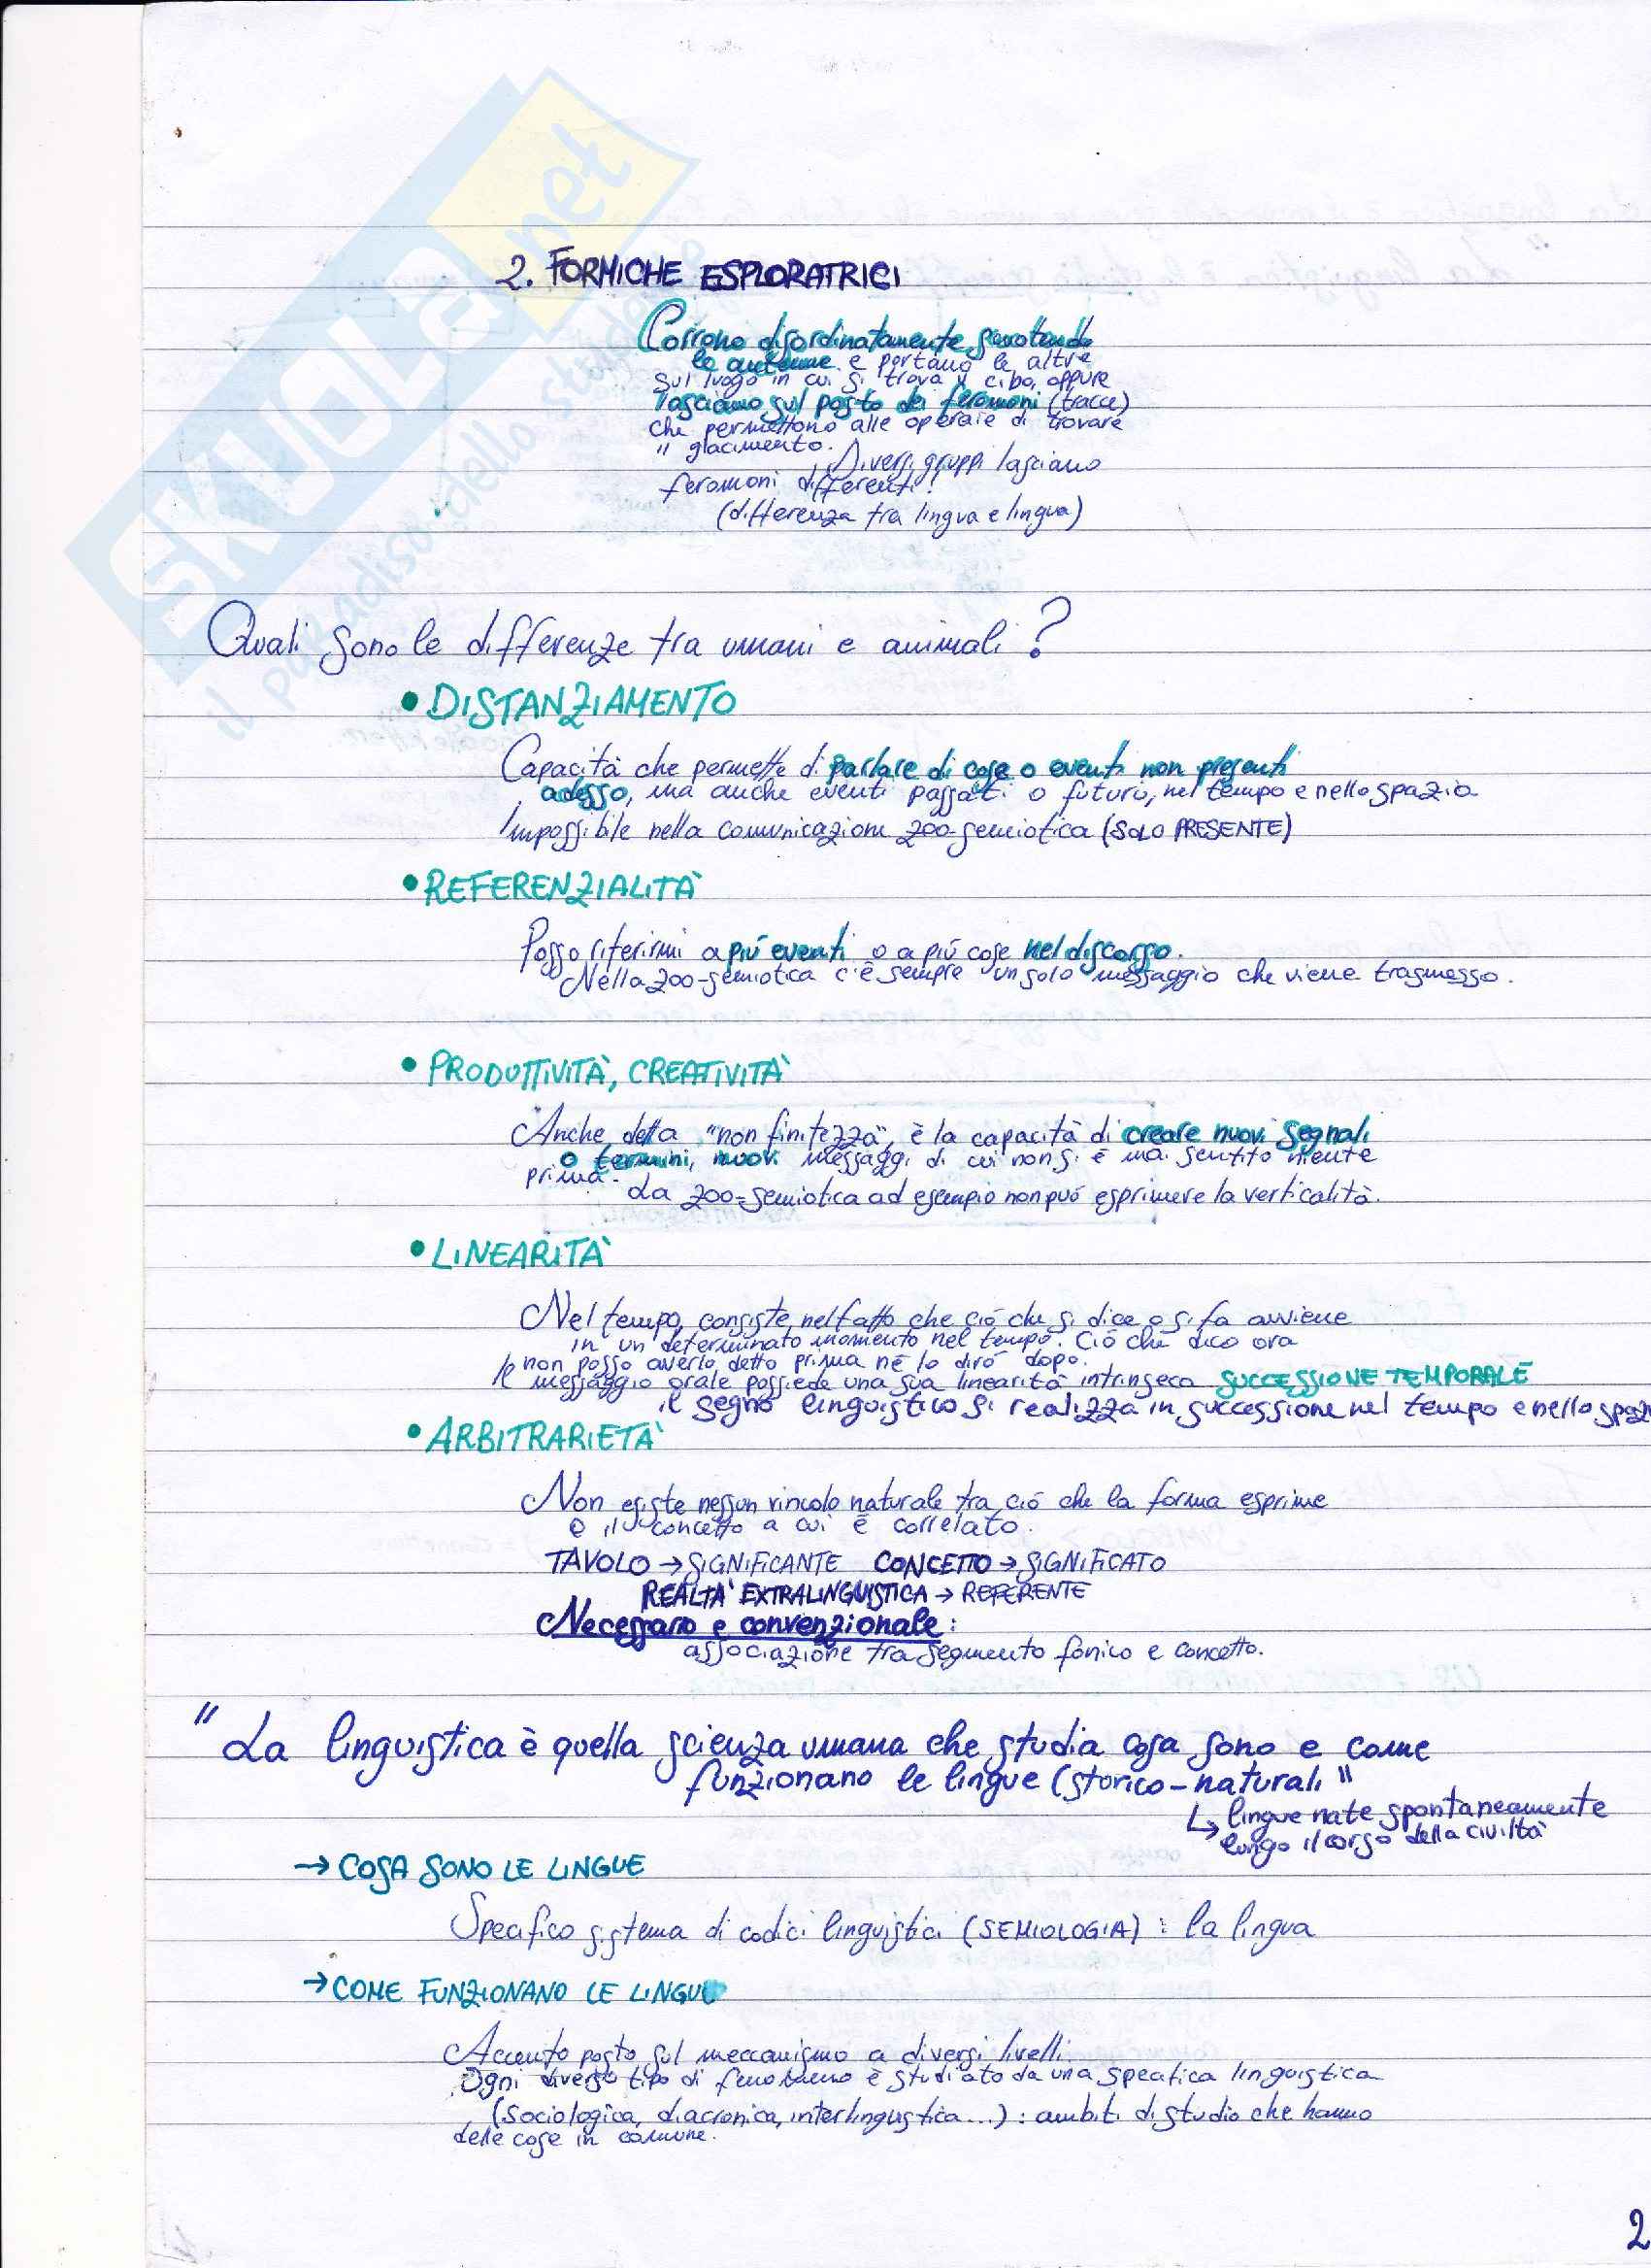 SKUOLA.net
il paradiso dello studente
2. FORMICHE ESPLORATRICI
Corrono disordinatamente scuotendo
le antenne e portano le altre
sul luogo in cui si trova il cibo, oppure
lasciano sul posto dei feromoni (tracce)
che permettono alle operaie di trovare
il giacimento.
Diversi gruppi lasciano
feromoni differenti!
(differenza tra lingua e lingua)
Quali sono le differenze tra umani e animali?
• DISTANZIAMENTO
Capacità che permette di parlare di cose o eventi non presenti
adesso, ma anche eventi passati o futuri, nel tempo e nello spazio
Impossibile nella comunicazione zoo-semiotica (SOLO PRESENTE)
• REFERENZIALITÀ
Posso riferirmi a piú eventi o a piú cose nel discorso.
Nella zoo-semiotica c'è sempre un solo messaggio che viene trasmesso.
• PRODUTTIVITÀ, CREATIVITÀ
Anche detta "non finitezza", è la capacità di creare nuovi segnali
o termini, nuovi messaggi di cui non si è mai sentito niente
prima.
La zoo-semiotica ad esempio non può esprimere la verticalità.
• LINEARITÀ
Nel tempo, consiste nel fatto che ció che si dice o si fa avviene
in un determinato momento nel tempo. Ció che dico ora
non posso averlo detto prima né lo dirò dopo.
Il messaggio orale possiede una sua linearità intrinseca SUCCESSIONE TEMPORALE
il segno linguistico si realizza in successione nel tempo e nello spaz
• ARBITRARIETÀ
Non esiste nessun vincolo naturale tra ció che la forma esprime
e il concetto a cui è correlato.
TAVOLO → SIGNIFICANTE CONCETTO → SIGNIFICATO
REALTÀ EXTRALINGUISTICA → REFERENTE
Necessario e convenzionale:
associazione tra segmento fonico e concetto.
"La linguistica è quella scienza umana che studia cosa sono e come
funzionano le lingue (storico-naturali"
↳ lingue nate spontaneamente
lungo il corso della civiltà
→ COSA SONO LE LINGUE
Specifico sistema di codici linguistici (SEMIOLOGIA): la lingua
→ COME FUNZIONANO LE LINGUE
Accento posto sul meccanismo a diversi livelli.
Ogni diverso tipo di fenomeno è studiato da una specifica linguistica
(sociologica, diacronica, interlinguistica...): ambiti di studio che hanno
delle cose in comune.
2